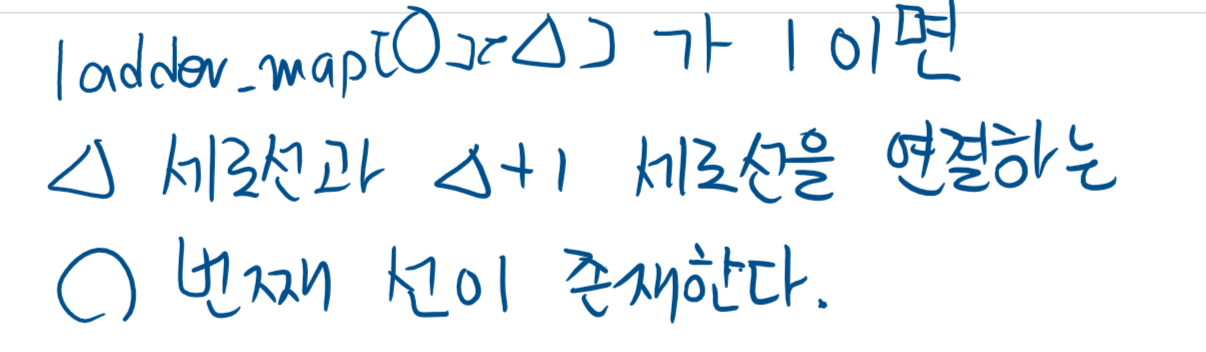 ladder_map[○][△] 가 1 이면
△ 세로선과 △+1 세로선을 연결하는
○ 번째 선이 존재한다.